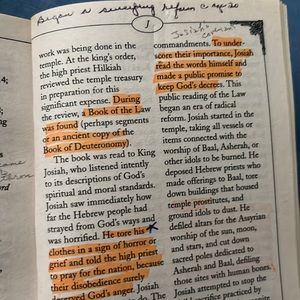 Began a sweeping reform
J
Josiah's
work was being done in the
temple. At the king's order,
the high priest Hilkiah
reviewed the temple treasury
in preparation for this
significant expense. During
the review, a Book of the Law
was found (perhaps segments
or an ancient copy of the
Book of Deuteronomy).
The book was read to King
Josiah, who listened intently
to its descriptions of God's
spiritual and moral standards.
Josiah saw immediately how
far the Hebrew people had
strayed from God's ways and
was horrified. He tore his
clothes in a sign of horror or
grief and told the high priest
to pray for the nation, because
their disobedience surely
deserved God's anger. Josiah
commandments. To under-
score their importance, Josiah
read the words himself and
made a public promise to
keep God's decrees. This
public reading of the Law
began an era of radical
reform. Josiah started in the
temple, taking all vessels or
items connected with the
worship of Baal, Asherah, or
other idols to be burned. He
deposed Hebrew priests who
made offerings to Baal, tore
down buildings that housed
temple prostitutes, and
ground idols to dust. He
defiled altars for the Assyrian
worship of the sun, moon,
and stars, and cut down
sacred poles dedicated to
Asherah and Baal, defiling
those sites with human bones.
Josiah attempted to stop the
sacrifice practiced by